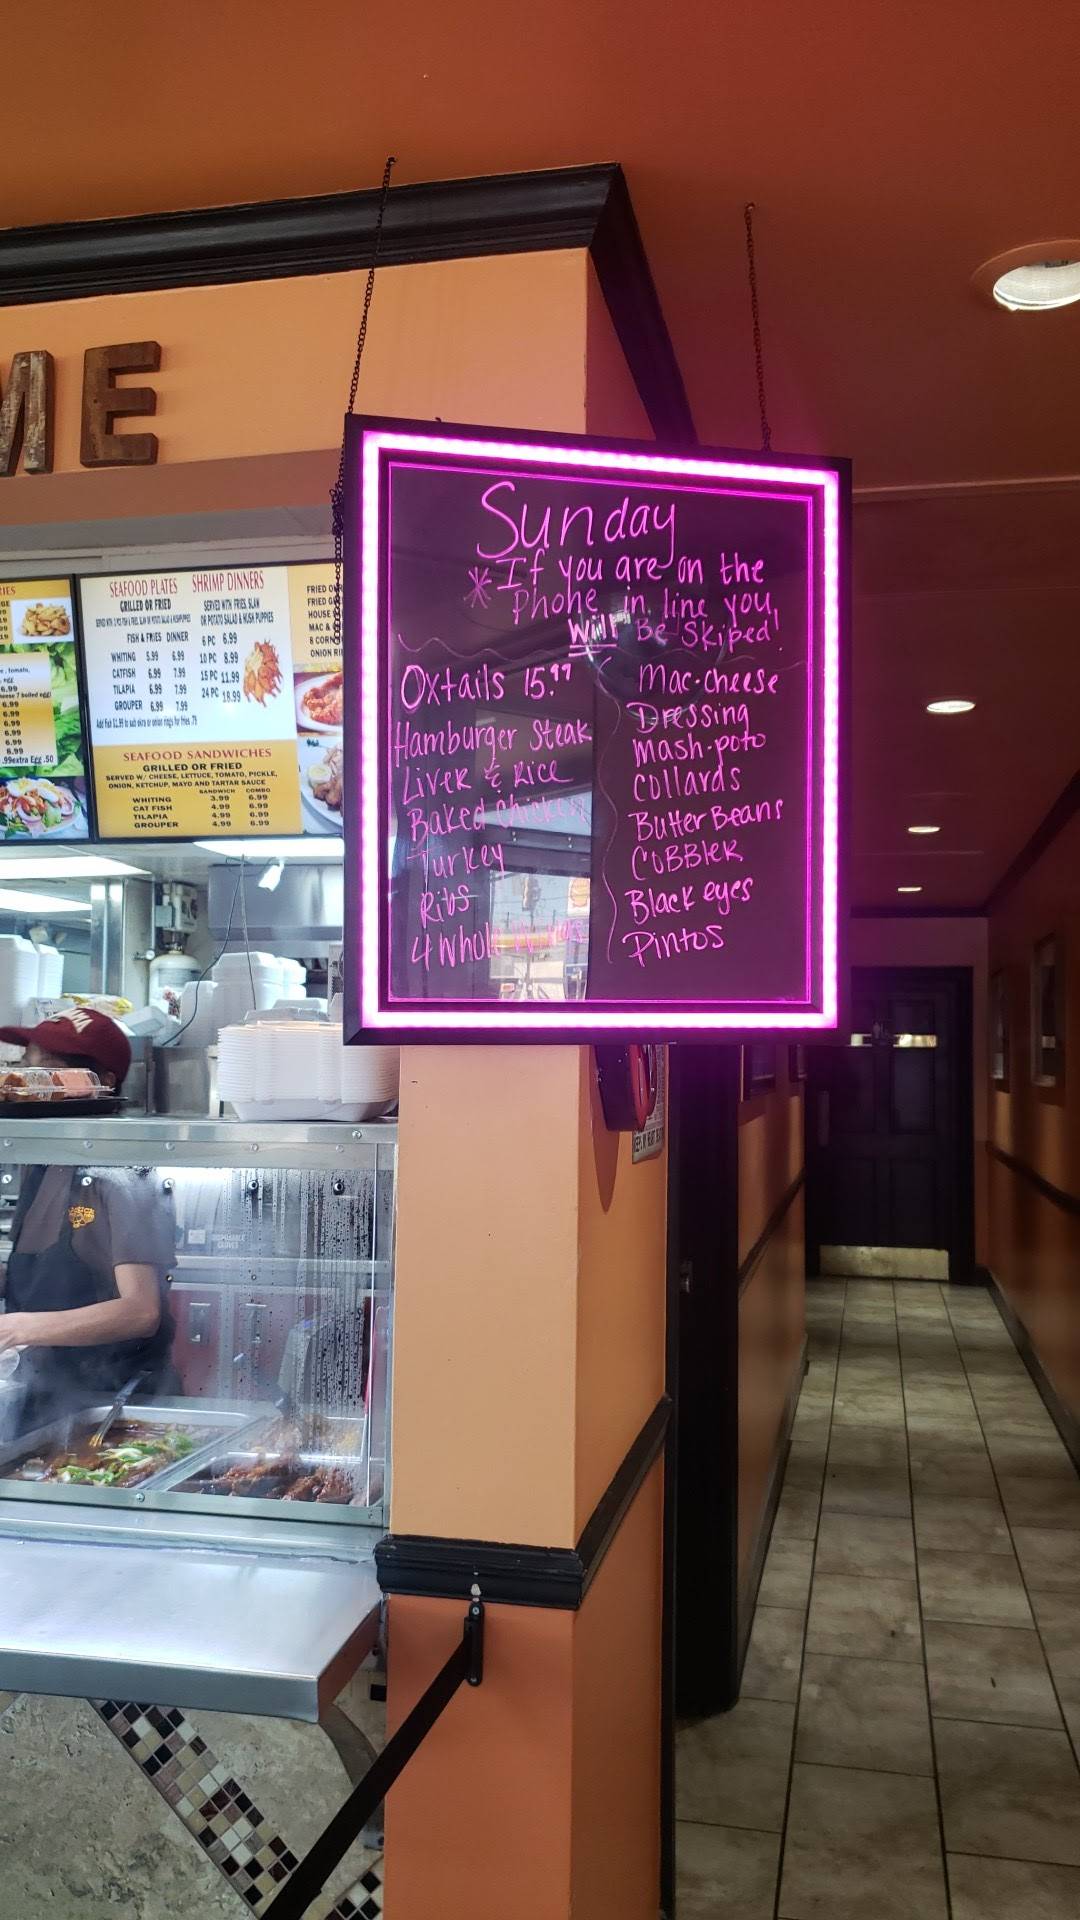 ME
Sunday
*If you are on the
phone in line you,
Will Be Skiped!
Oxtails 15.99
Hamburger Steak
Liver & Rice
Baked Chicken
Turkey
Ribs
4 Whole Wings
Mac-cheese
Dressing
Mash-poto
Collards
Butter Beans
CoBBler
Black eyes
Pintos
SEAFOOD PLATES
GRILLED OR FRIED
FISH & FRIES DINNER
WHITING 5.99 6.99
CATFISH 6.99 7.99
TILAPIA 6.99 7.99
GROUPER 6.99 7.99
SHRIMP DINNERS
SERVED WITH FRIES, SLAW
OR POTATO SALAD & HUSH PUPPIES
6 PC 6.99
10 PC 8.99
15 PC 11.99
24 PC 18.99
SEAFOOD SANDWICHES
GRILLED OR FRIED
SERVED W/ CHEESE, LETTUCE, TOMATO, PICKLE,
ONION, KETCHUP, MAYO AND TARTAR SAUCE
SANDWICH COMBO
WHITING 3.99 6.99
CAT FISH 4.99 6.99
TILAPIA 4.99 6.99
GROUPER 4.99 6.99
FRIED
FRIED
HOUSE
MAC &
8 CORN
ONION
6.99
6.99
6.99
6.99
6.99
8.99
.99extra Egg .50